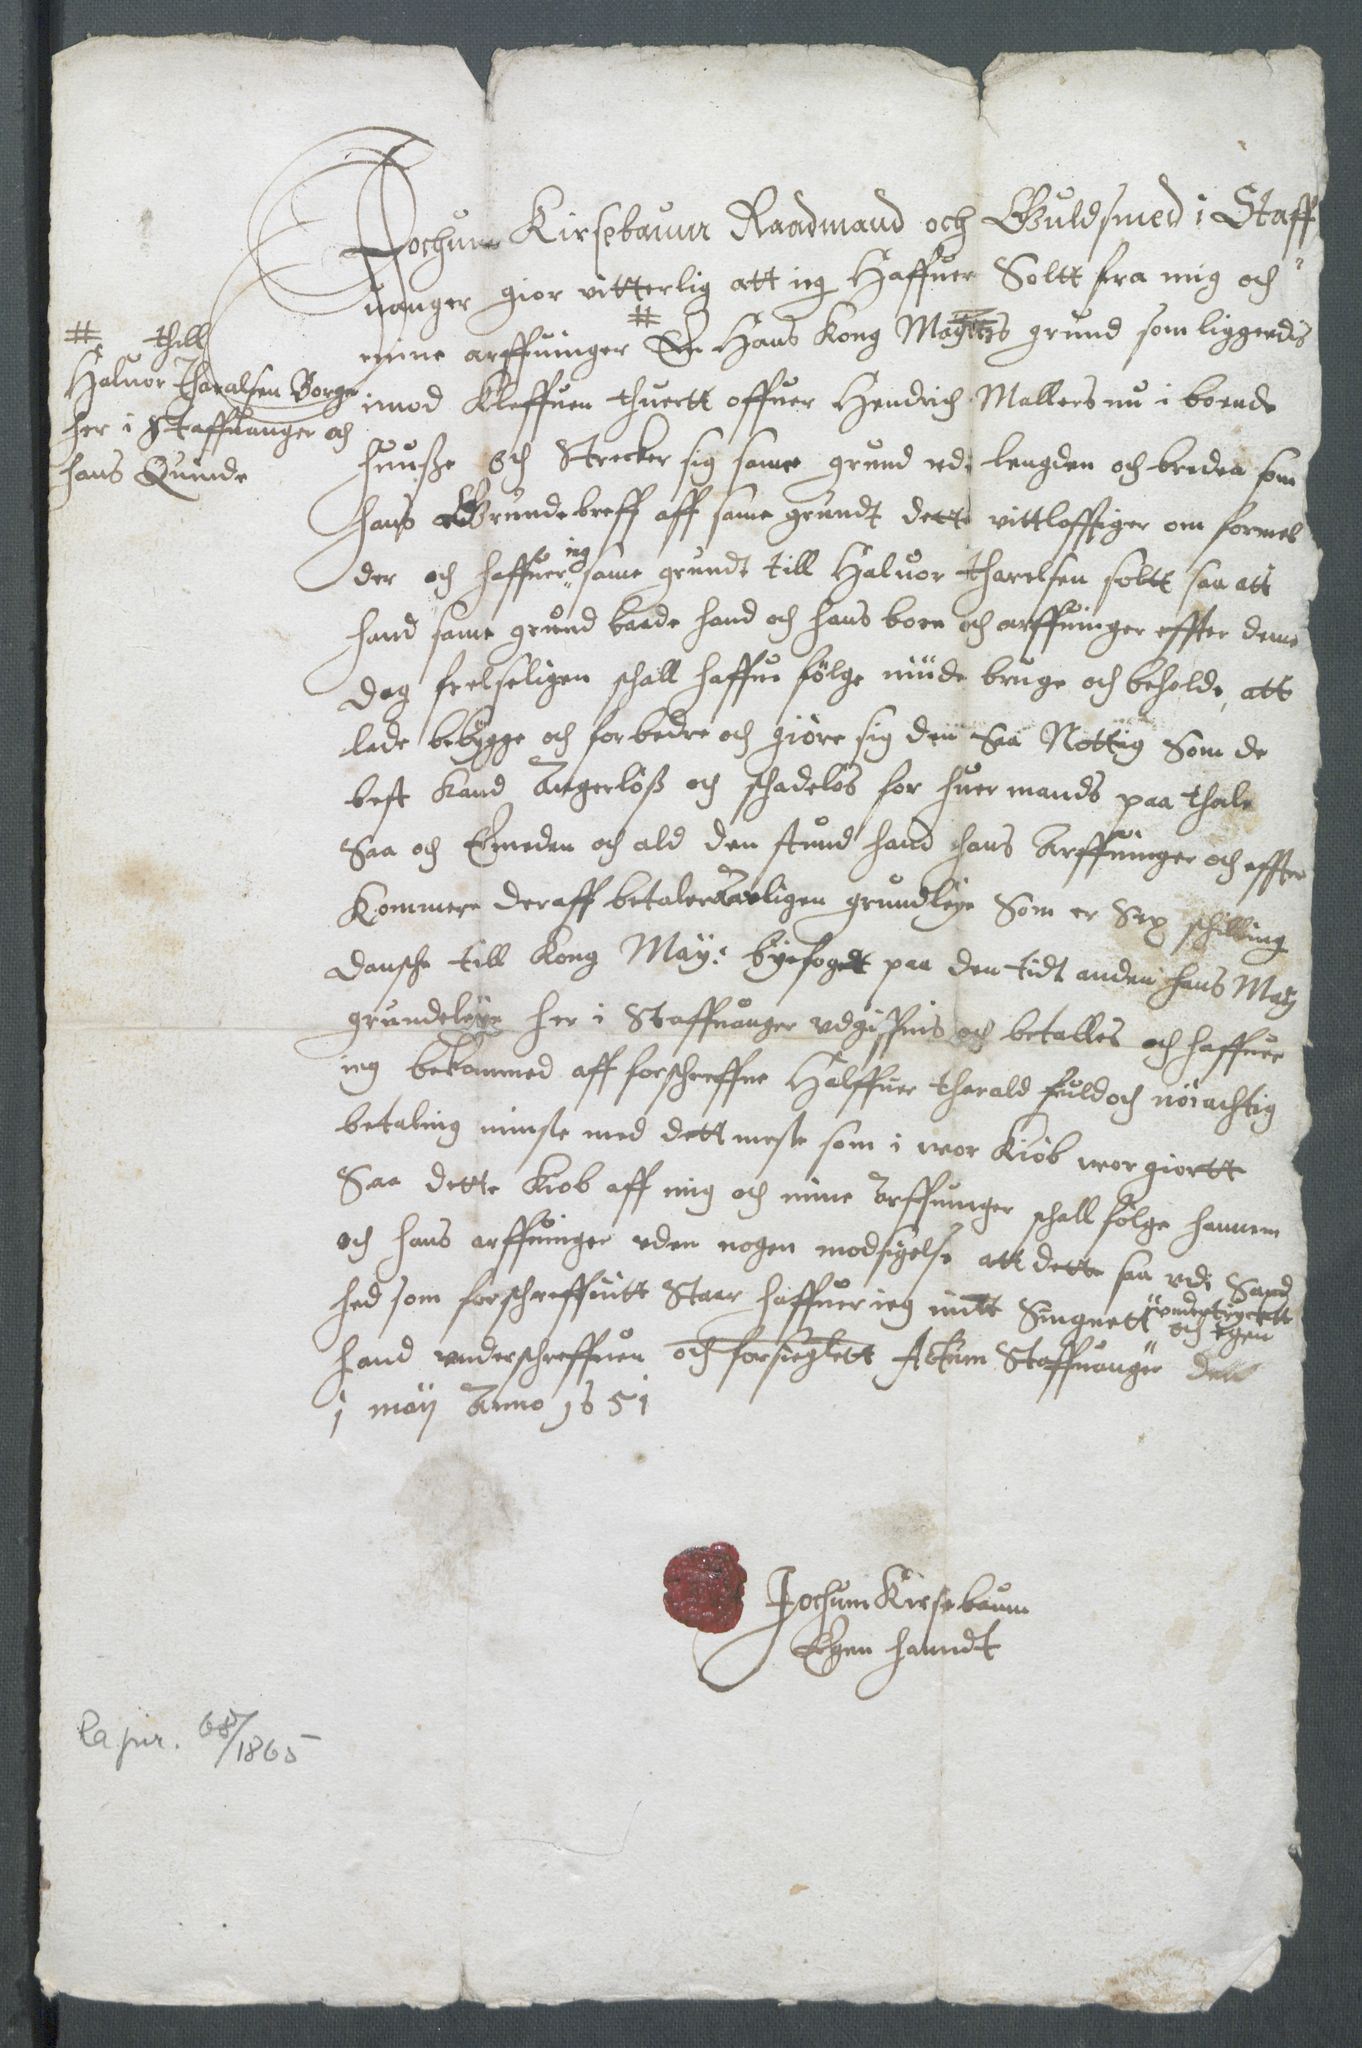 Jochum Kirsebaum Raadmand och Guldsmed i Staff
uanger gior vitterlig att ieg Haffuer Soltt fra mig och
mine arffuinger # En Hans Kong Maytz grund som liggendis
# thill
Haluor Tharalsen Borger
her i Staffuanger och
hans Quinde
imod Kleffuen thuertt offuer Hendrich Mallers nu i boende
huusse Och Strecker sig same grund udi lengden och breden som
hans Grundebreff aff same grundt dette vittlofftiger om formel
der och haffuer ieg same grundt till Haluor tharelsen soltt saa att
hand same grund baade hand och hans born och arffuinger effter denne
dag frelseligen schall haffue følge niude bruge och beholde, att
lade bebygge och forbedre och giøre sig den saa Nottig Som de
best Kand Angerløss och schadeløs for huer mands paa thale
Saa och Emeden och ald den stund hand hans Arffuinger och effter
Kommere deraff betaler Aarligen grundleye Som er Sex schilling
dansche till Kong May: byefogett paa den tidt anden hans May
grundeleye her i Staffuanger udgiffuis och betalles och haffuer
ieg bekommed aff forschreffne Halffuer tharald fuld och nøiachtig
betaling minste med dett meste som i wor Kiøb wor giortt
Saa dette Kiob aff mig och mine Arffuinger schall følge hannem
och hans arffuinger uden nogen modsigelse att dette saa udi Sand
hed som forschreffuitt Staar haffuer ieg mitt Singnett undertryckett
och Egen
hand underschreffuen och forsieglett Actum Staffuanger den
1 maij Anno 1651
Jochum Kirsebaum
Egen hanndt
Ra jnr. 68/1865